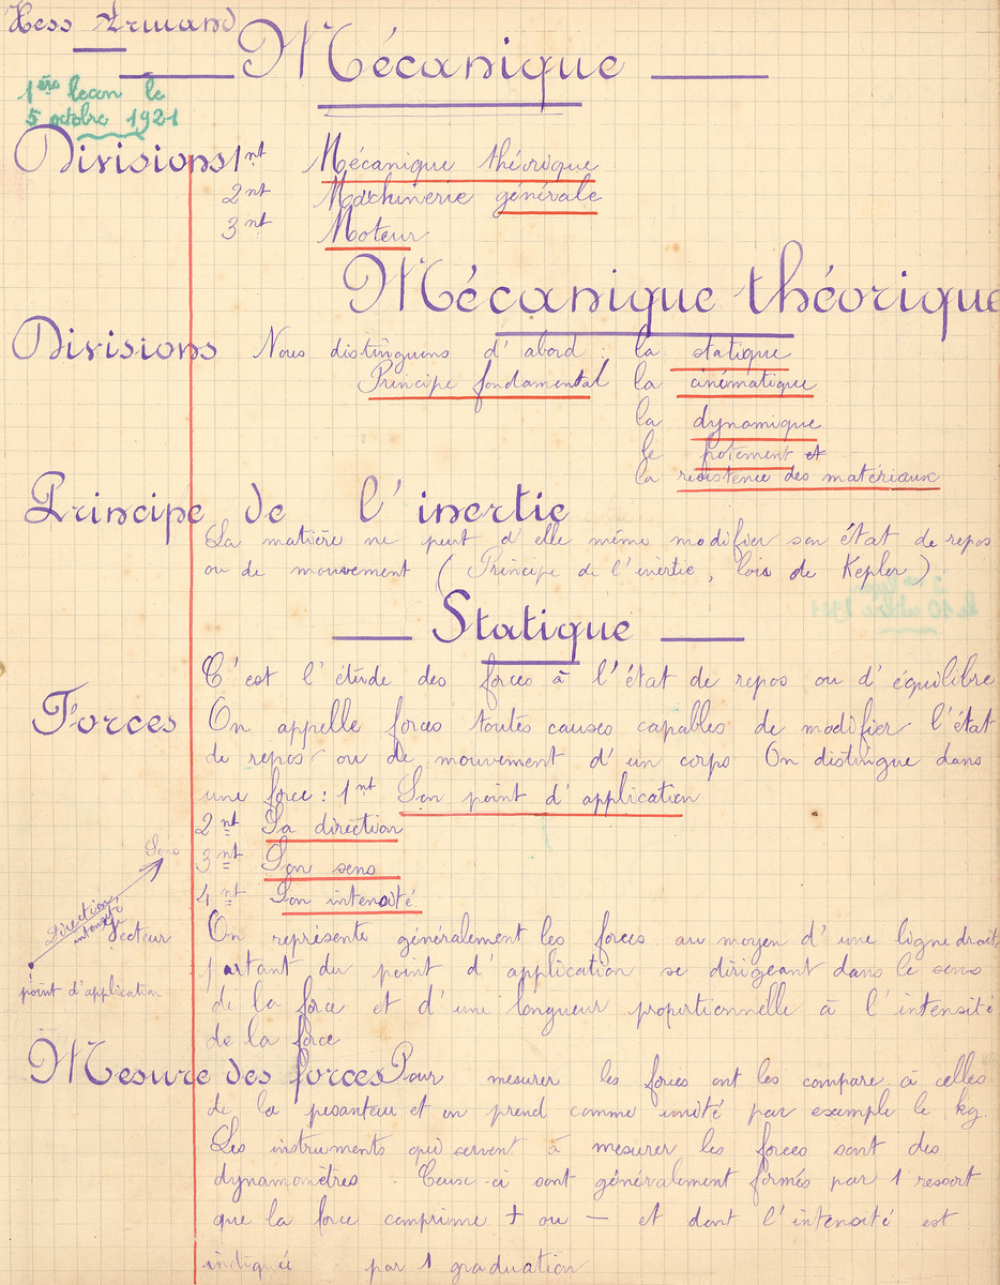 Hess Armand
Mécanique
1ère leçon le
5 octobre 1921
Divisions 1nt Mécanique théorique
2nt Machinerie générale
3nt Moteur
Mécanique théorique
Divisions Nous distinguons d'abord : la statique
Principe fondamental la cinématique
la dynamique
le frotement et
la resistence des matériaux
Principe de l'inertie
La matière ne peut d'elle même modifier son état de repos
ou de mouvement (Principe de l'inertie, lois de Kepler)
Statique
C'est l'étude des forces à l'état de repos ou d'équilibre
Forces On appelle forces toutes causes capables de modifier l'état
de repos ou de mouvement d'un corps On distingue dans
une force : 1nt Son point d'application
2nt Sa direction
3nt Son sens
4nt Son intensité
Sens
Direction
intensité
Vecteur
point d'application
On représente généralement les forces au moyen d'une ligne droite
partant du point d'application se dirigeant dans le sens
de la force et d'une longueur proportionnelle à l'intensité
de la force
Mesure des forces Pour mesurer les forces ont les compare à celles
de la pesanteur et on prend comme unité par exemple le kg.
Les instruments qui servent à mesurer les forces sont des
dynamomètres. Ceux-ci sont généralement formés par 1 ressort
que la force comprime + ou - et dont l'intensité est
indiquée par 1 graduation